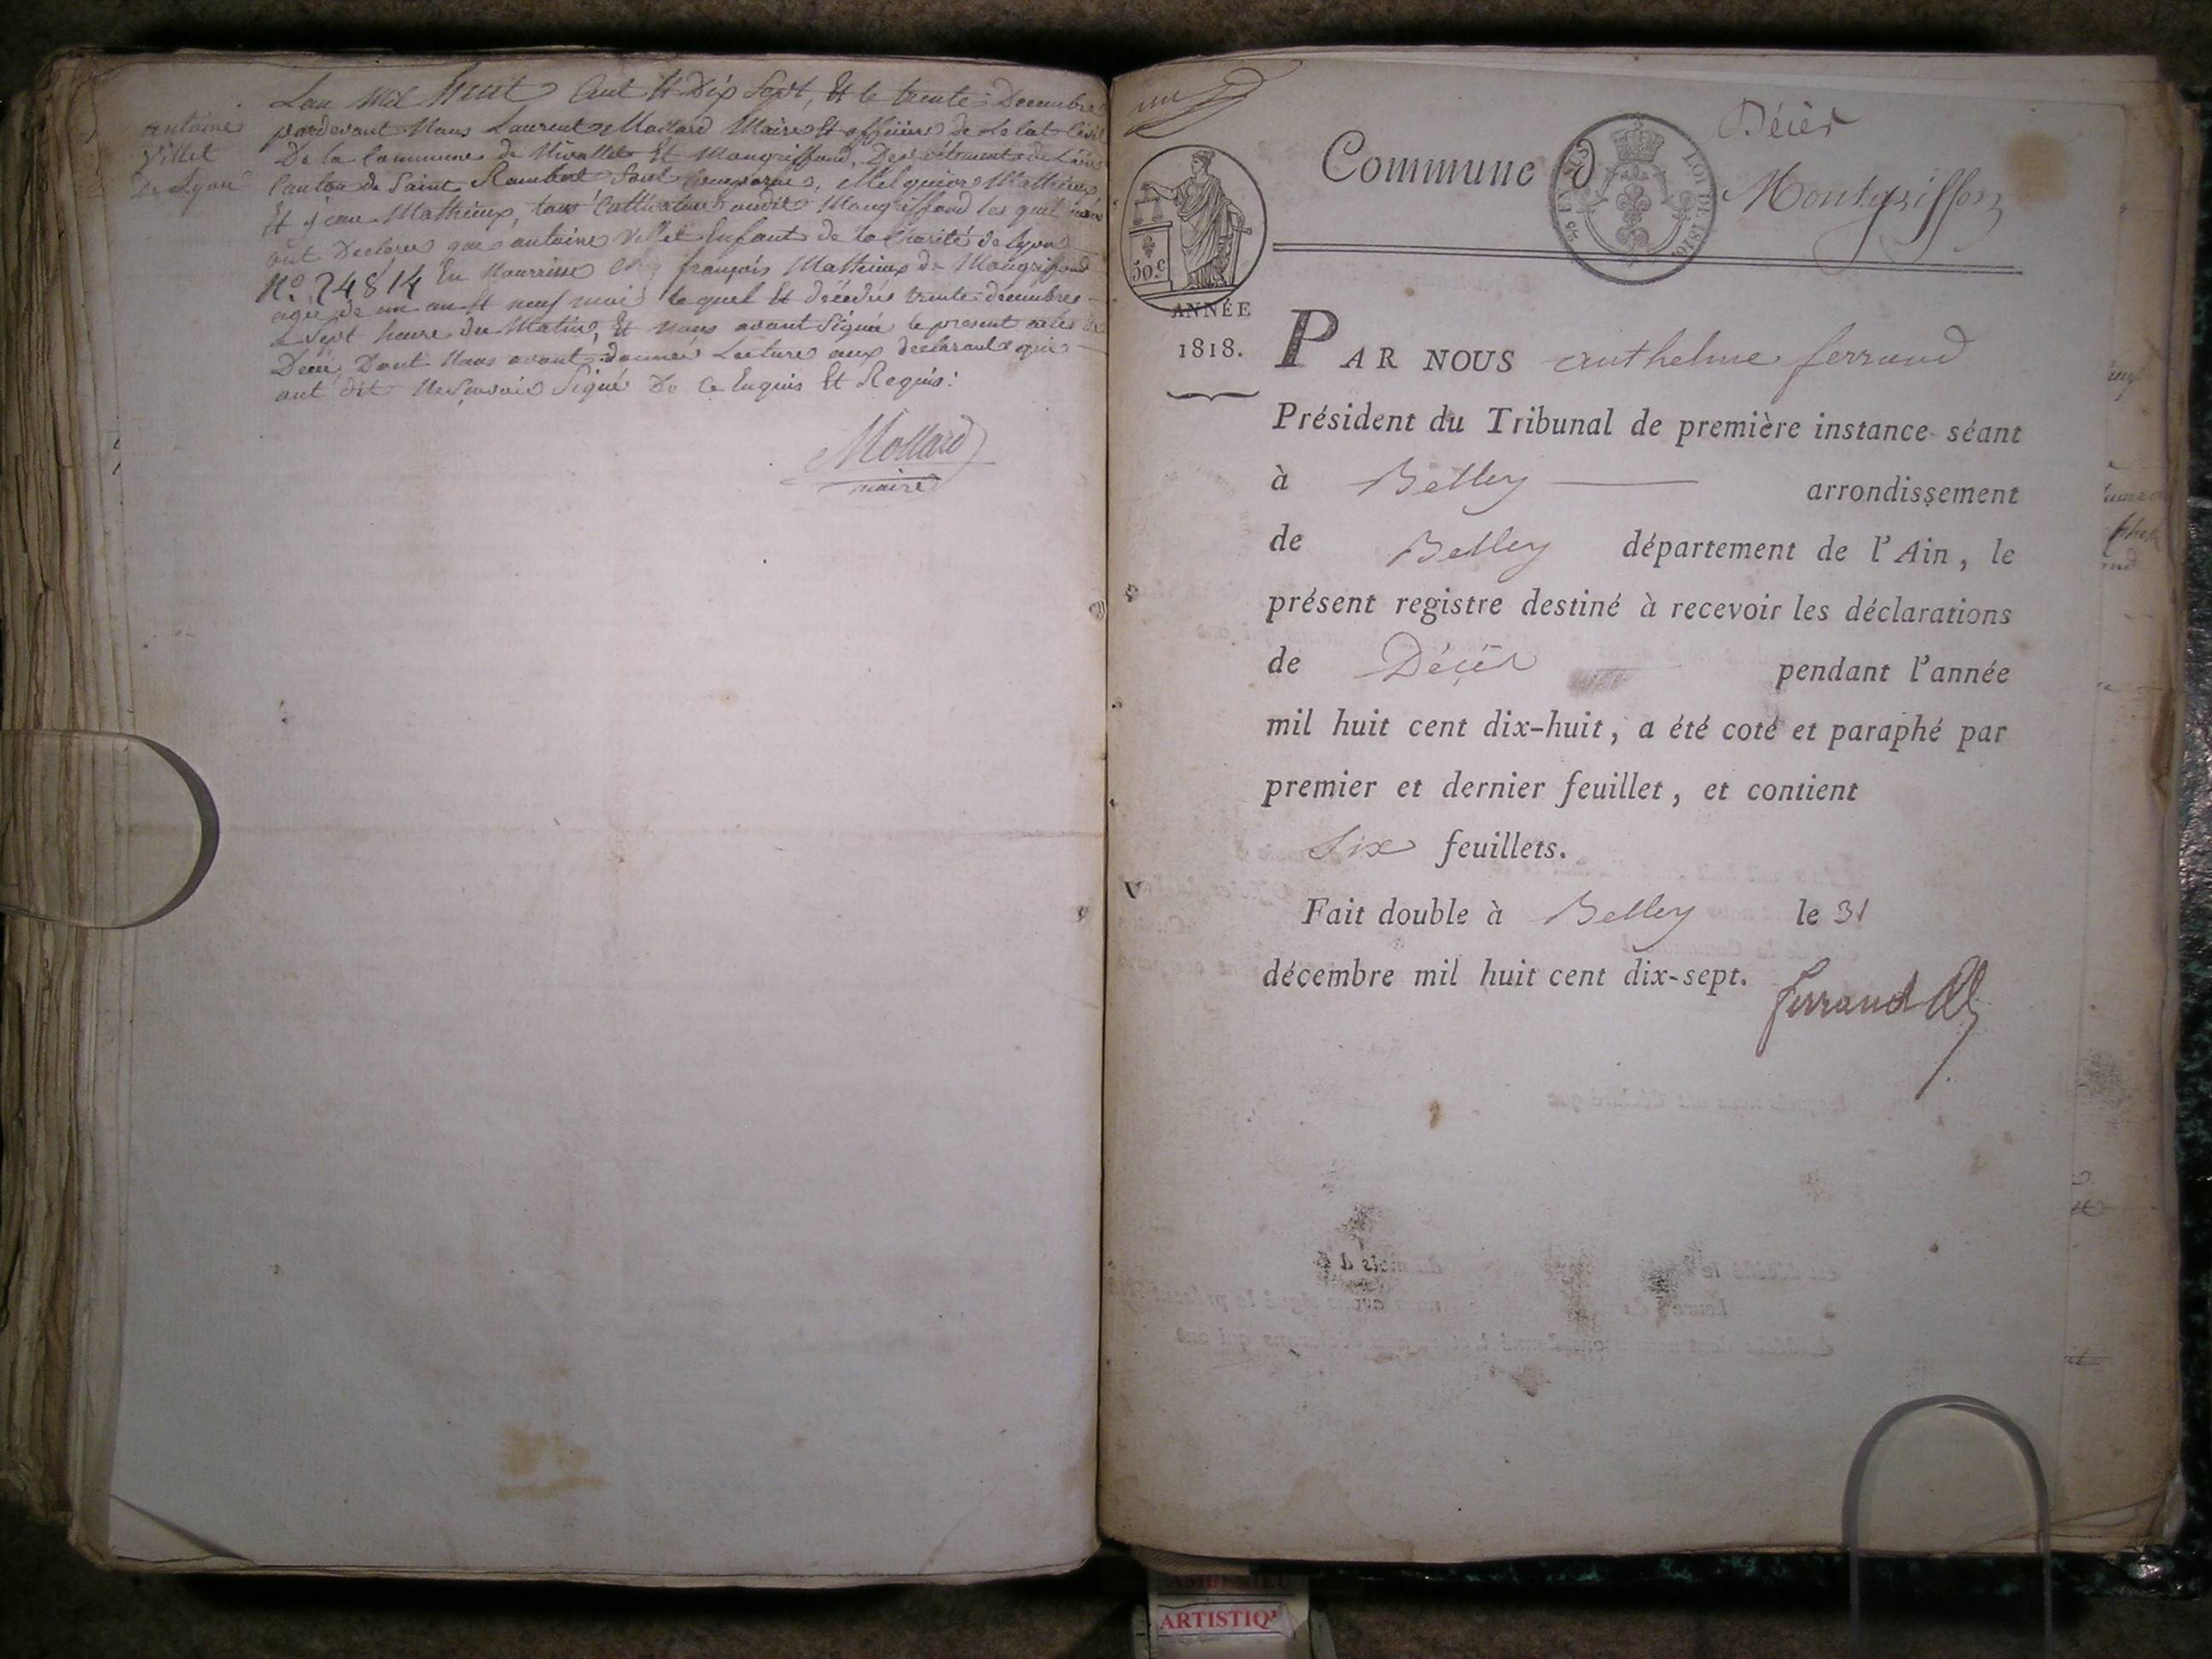 antoine
Villet
de Lyon
Lan Mil Huit Cent Et Dix Sept, Et le trente Decembre
pardevant Nous Laurent Mollard Maire Et officier de Letat Civil
De la Commune de Nivollet Et Mongriffond, Departement de Lain
Canton de Saint Rambert Sont Comparus, Melquior Mathieux
Et jean Mathieux, tous Cultivateurs audit Mongriffond les quel nous
ont Declaré que antoine Villet Enfant de la Charité de Lyon
N.º 24814 En Nourrisse Chez françois Mathieux de Mongriffond
agée de un an Et neuf mois lequel Et décédée trente decembre
a Sept heure du Matin, Et Nous avont Signée le present acte de
Décé, Dont Nous avont donnée Lecture aux declarants qui
ont dit Ne Savoir Signé De Ce Enquis Et Requis.
Mollard
maire
un
Décès
Commune d Montgriffon
LOI DE 1816
50.c
ANNÉE
1818.
PAR NOUS anthelme ferrand
Président du Tribunal de première instance séant
à Belley arrondissement
de Belley département de l'Ain, le
présent registre destiné à recevoir les déclarations
de Décès pendant l'année
mil huit cent dix-huit, a été coté et paraphé par
premier et dernier feuillet, et contient
Six feuillets.
Fait double à Belley le 31
décembre mil huit cent dix-sept.
ferrand
ARTISTIQ